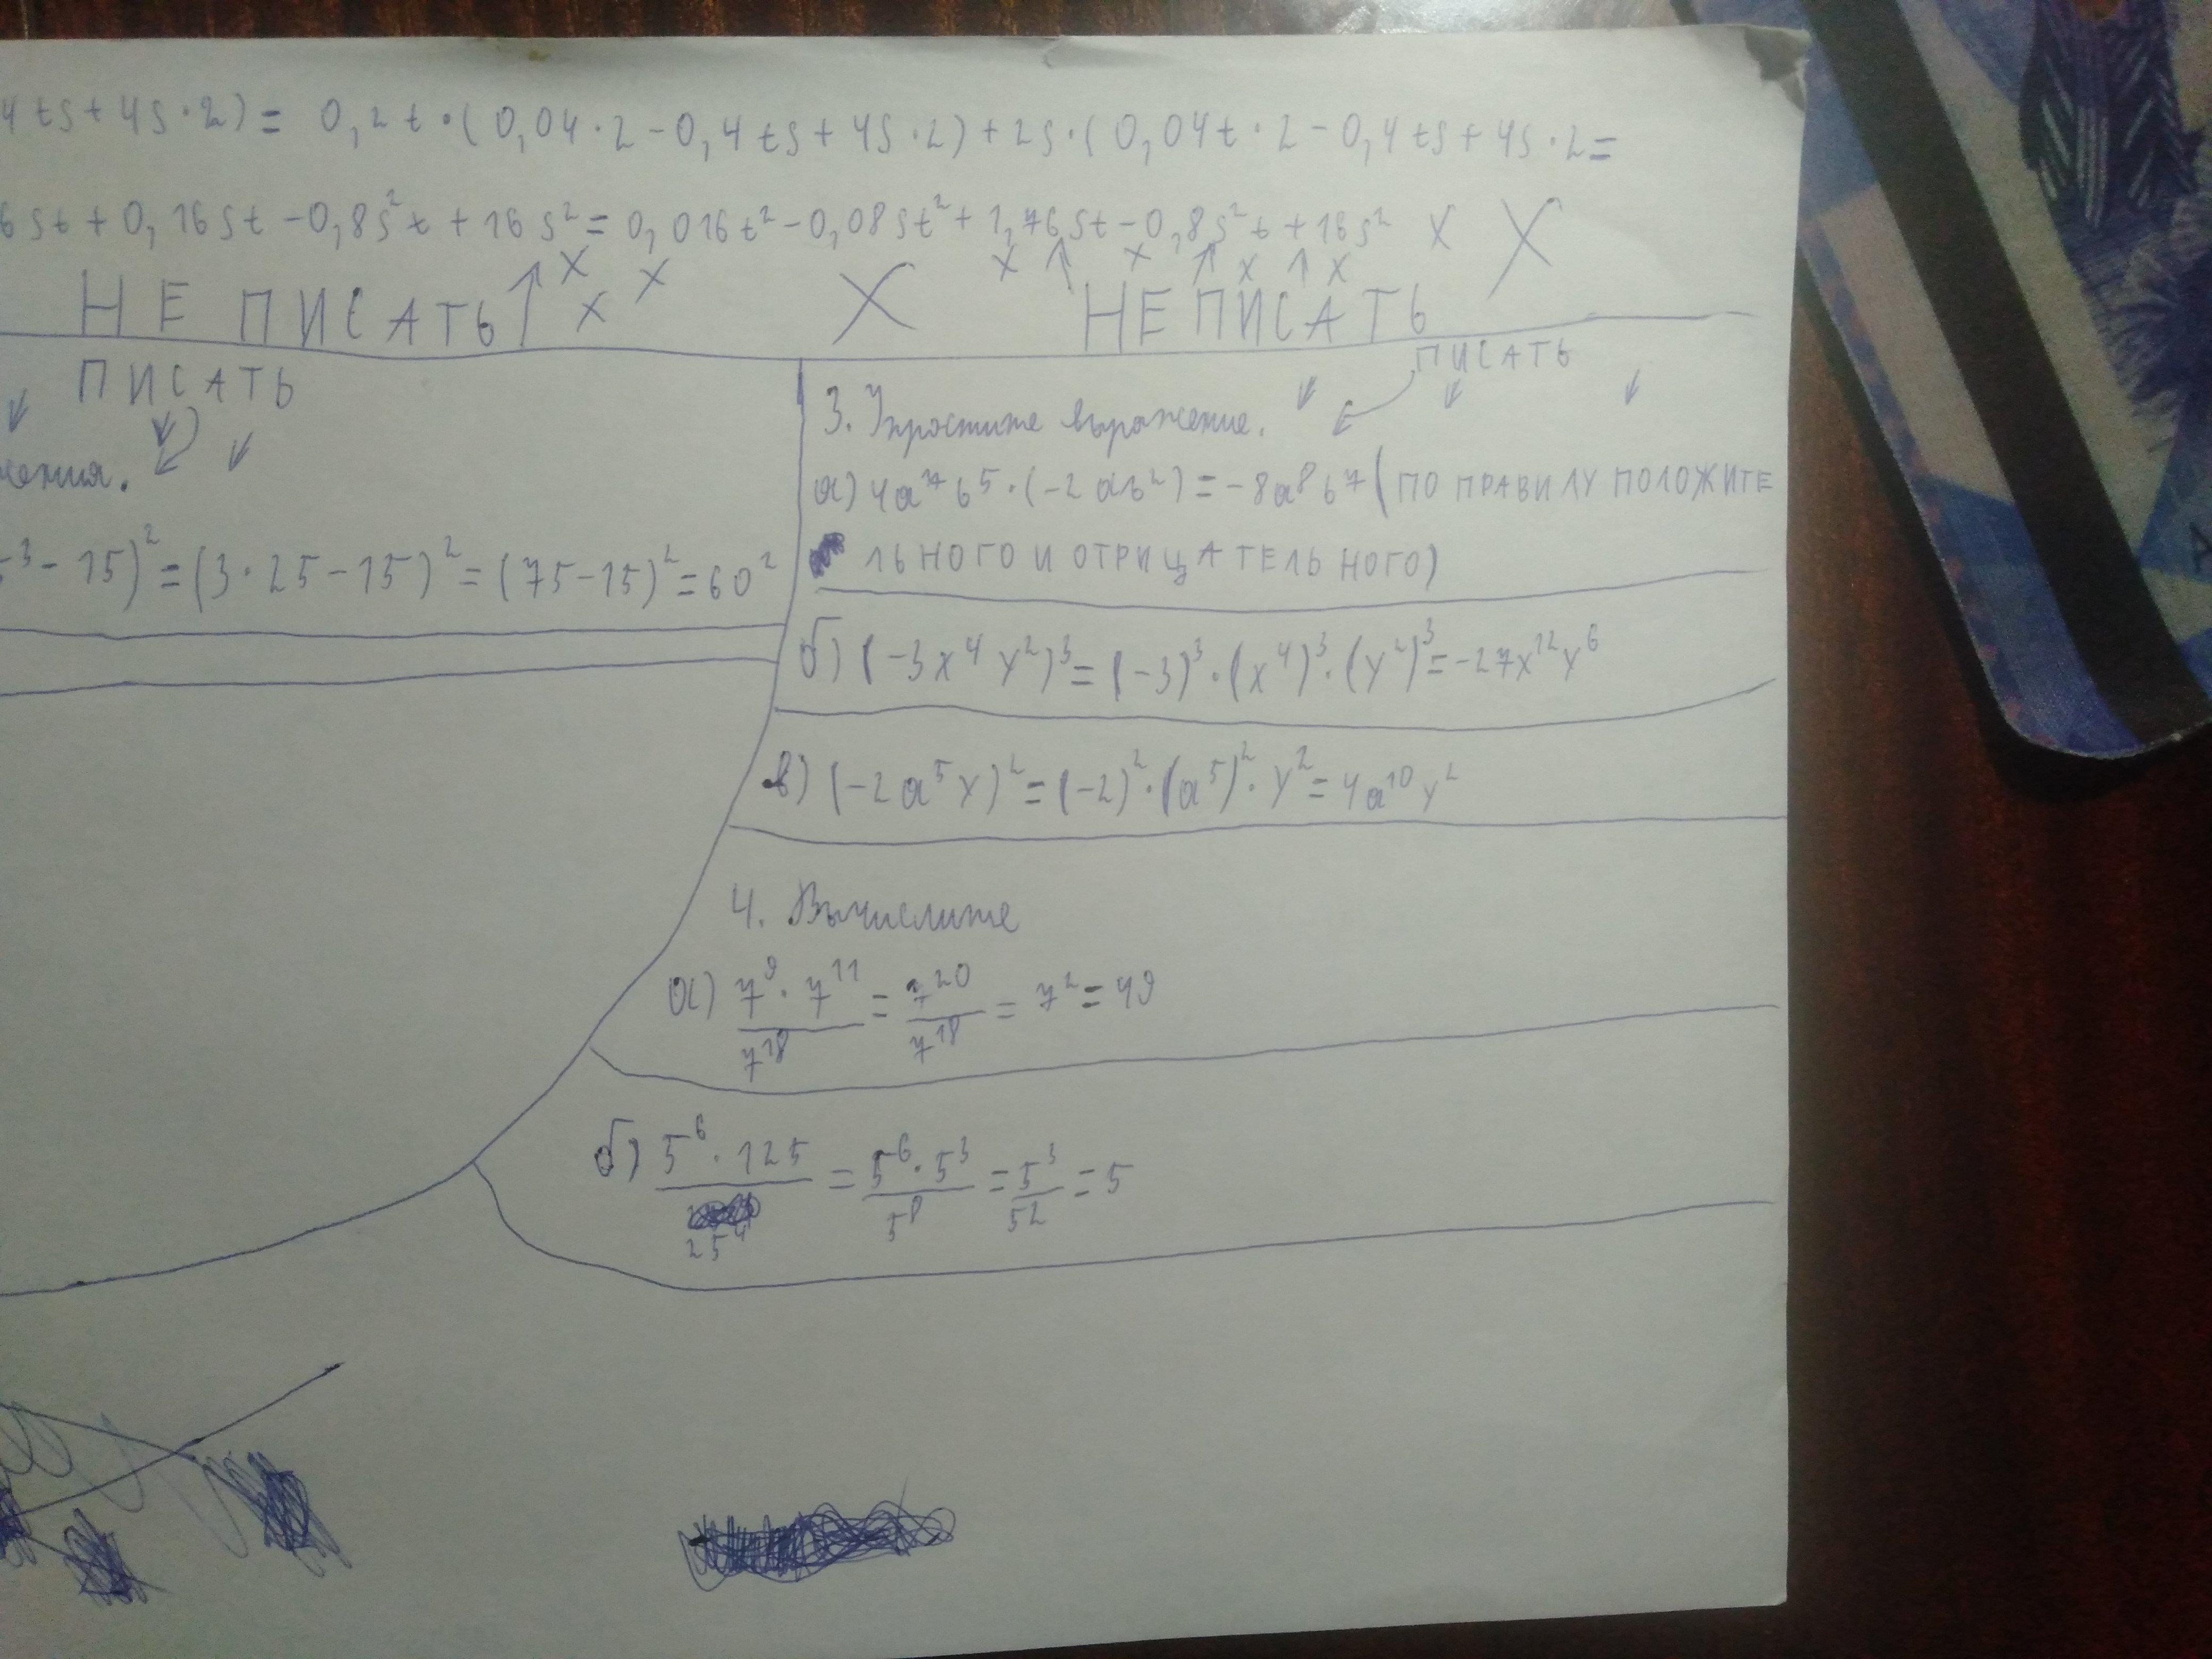 4ts+4s·2)= 0,2t·(0,04·2-0,4ts+4s·2)+2s·(0,04t·2-0,4ts+4s·2=
6st+0,16st-0,8s²t+16s²=0,016t²-0,08st²+1,76st-0,8s²t+16s² x X
x x x x x x x
НЕ ПИСАТЬ X НЕ ПИСАТЬ
ПИСАТЬ
-15)²=(3·25-15)²=(75-15)²=60²
ПИСАТЬ
3. Упростите выражение.
а) 4a⁷b⁵·(-2ab²)=-8a⁸b⁷(ПО ПРАВИЛУ ПОЛОЖИТЕ
ЛЬНОГО И ОТРИЦАТЕЛЬНОГО)
б) (-3x⁴y²)³=(-3)³·(x⁴)³·(y²)³=-27x¹²y⁶
в) (-2a⁵y)²=(-2)²·(a⁵)²·y²=4a¹⁰y²
4. Вычислите
а) 7⁹·7¹¹/7¹⁸=7²⁰/7¹⁸=7²=49
б) 5⁶·125/25⁴=5⁶·5³/5⁸=5³/5²=5